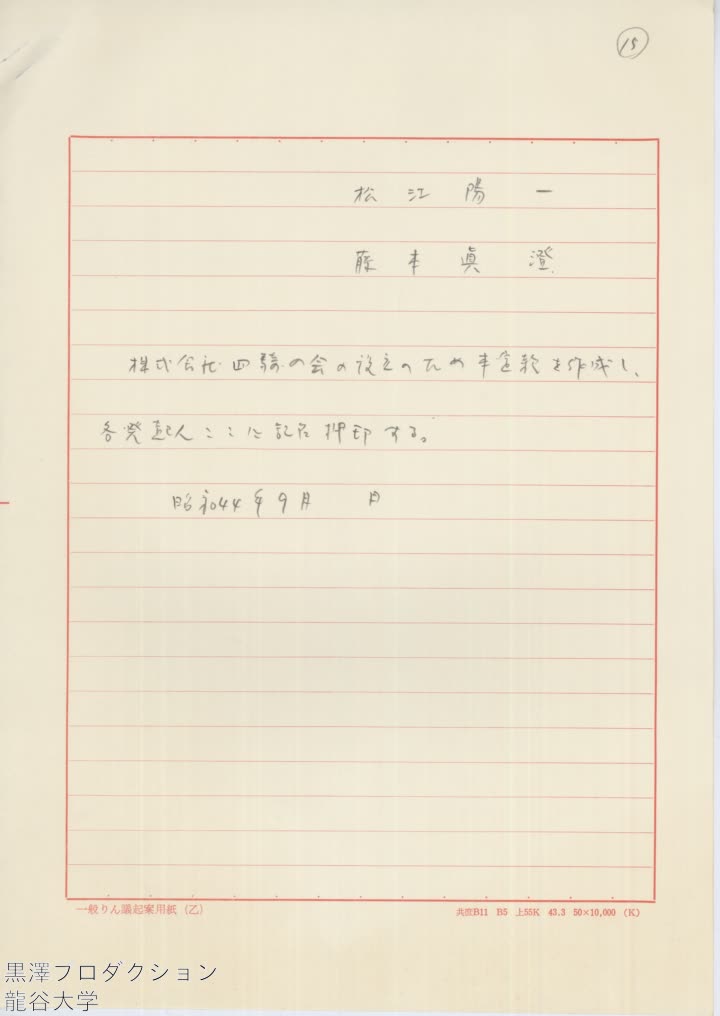 15
松江陽一
藤本眞澄
株式会社四騎の会の設立のため本定款を作成し、
各発起人ここに記名押印する。
昭和44年9月　　月
一般りん議起案用紙（乙）
共度B11　B5　上55K　43.3　50×10,000　（K）
黒澤フロダクション
龍谷大学